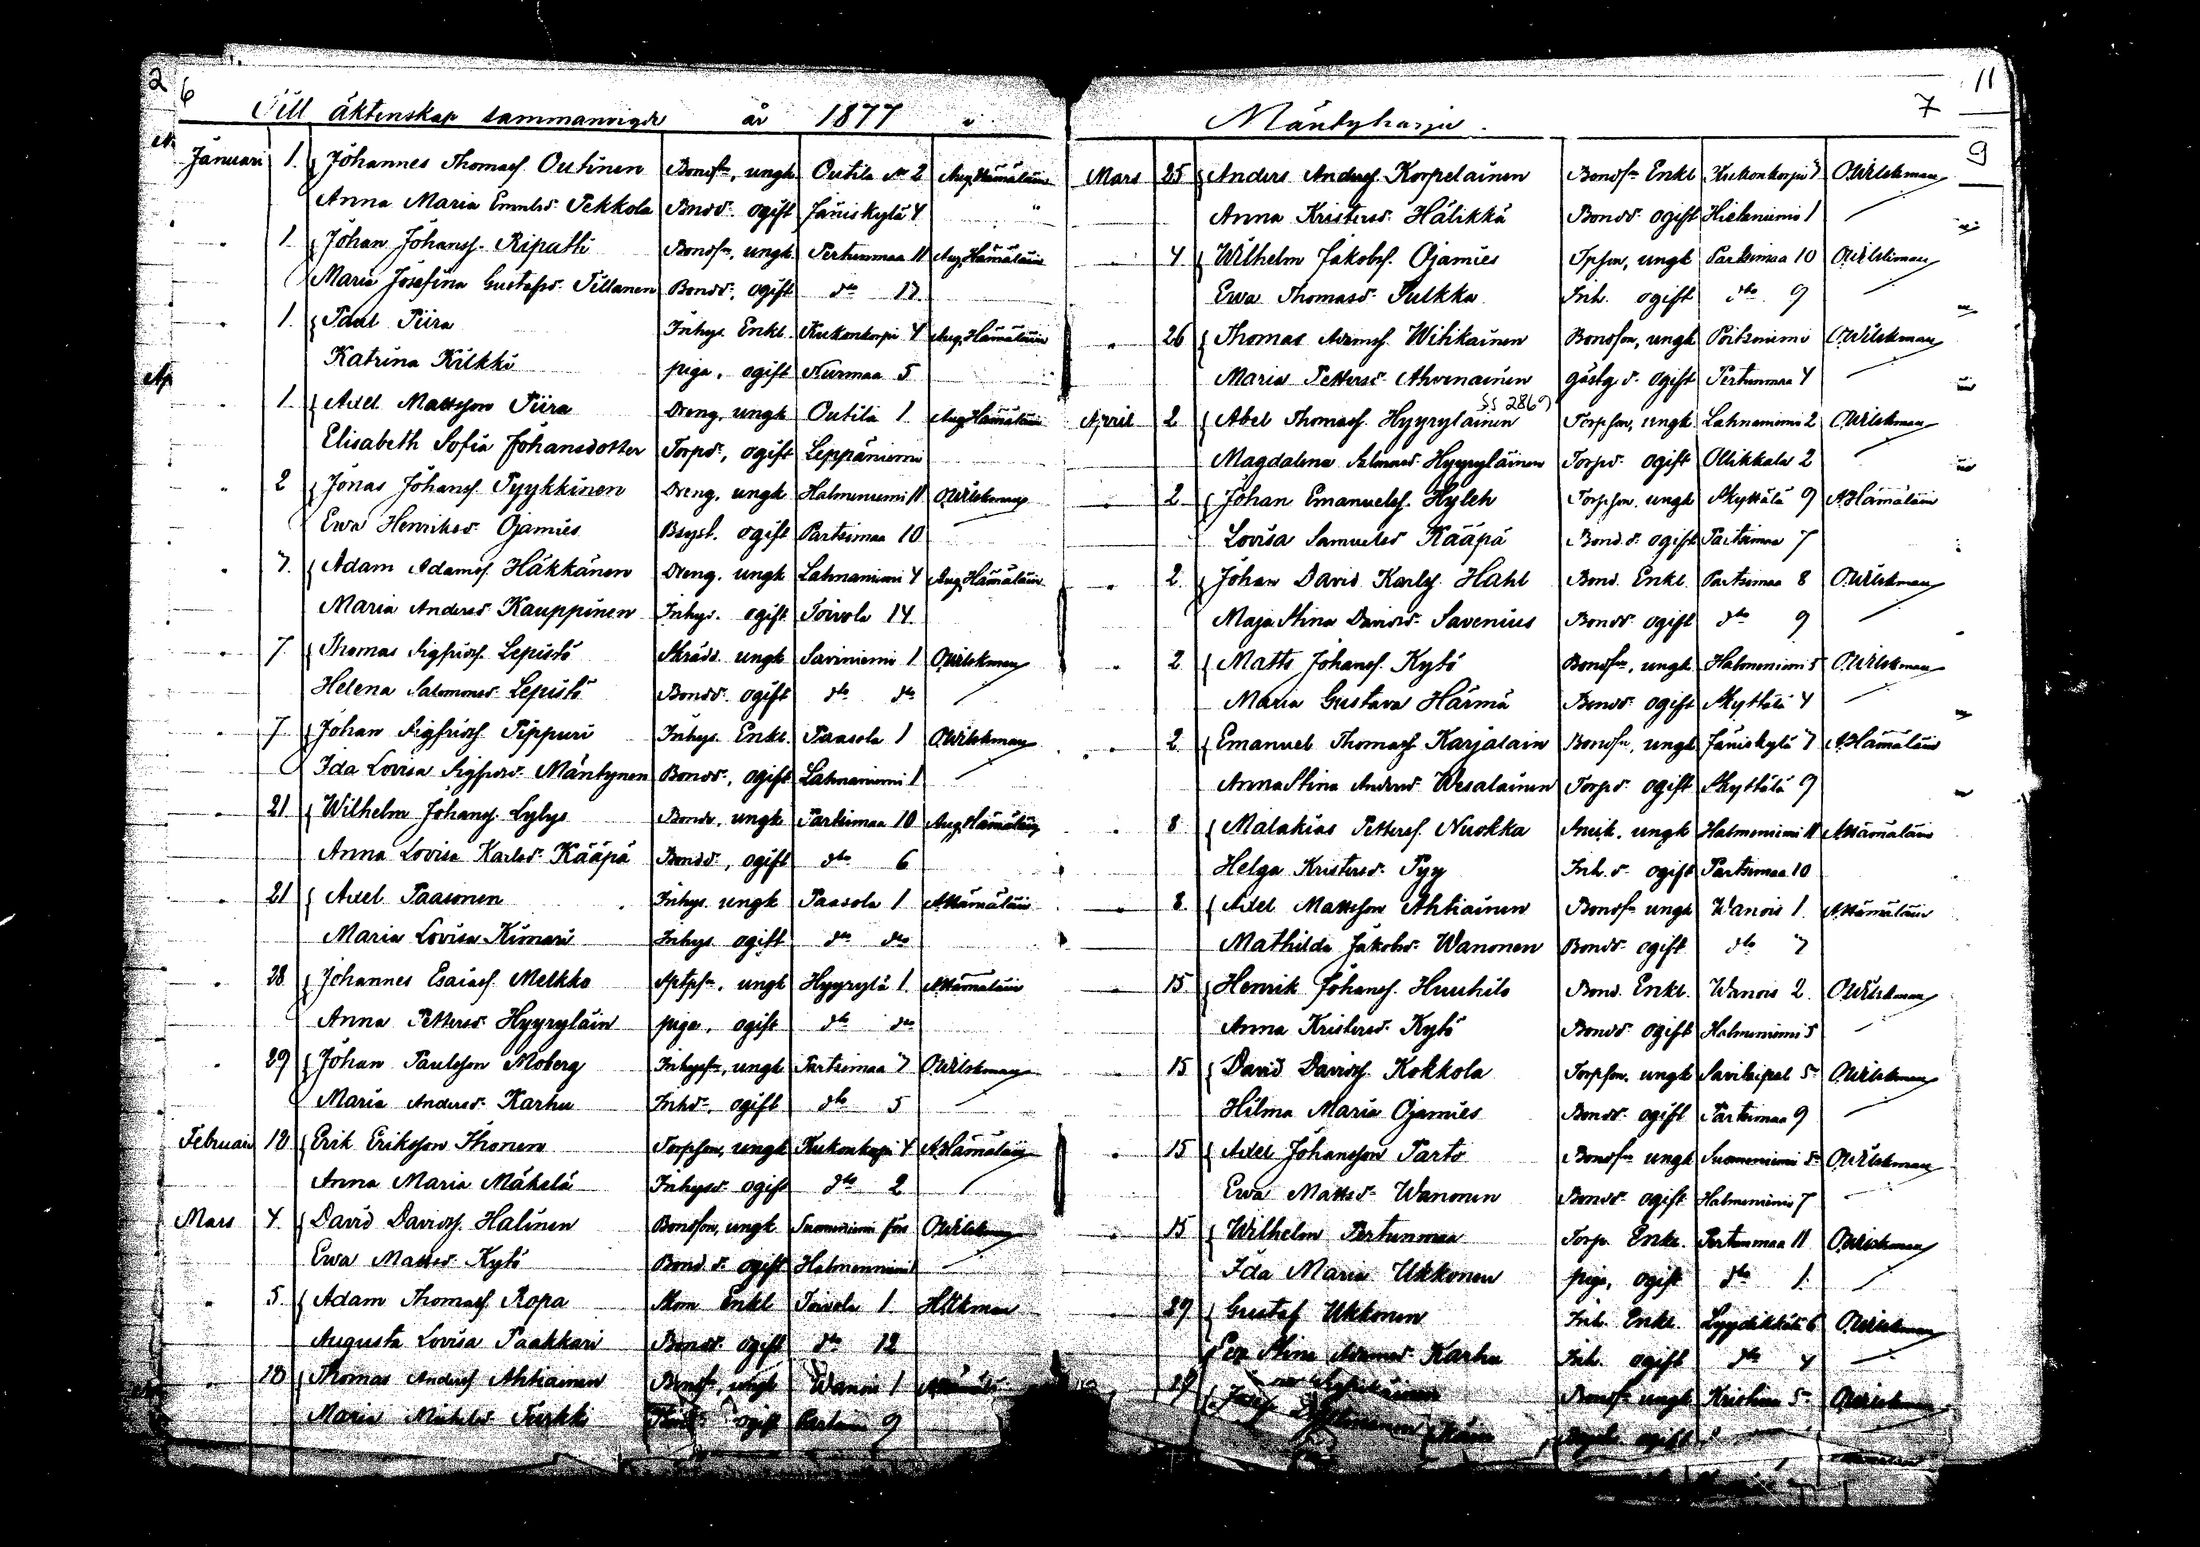 2 6
Till äktenskap sammanvigde år 1877
Januari 1. Johannes Thomasf. Outinen Bondsn, ungk Outila No 2 Aug. Hämäläin
Anna Maria Pekkola Bondd. ogift Jäniskylä 4 "
" 1. Johan Johansf. Riputti Bondsn, ungk. Pertunmaa 11 Aug. Hämäläin
Maria Josefina Gustafsd. Tillanen Bondd. ogift dto 17
" 1. Paul Piira Inhys. Enkl. Kuekonkorpi 4 Aug. Hämäläin
Katrina Kilkki piga, ogift Nurmaa 5
" 1 Axel Mattsson Piira Dreng, ungk Outila 1 Aug. Hämäläin
Elisabeth Sofia Johansdotter Torpd., ogift Leppäniemi
" 2 Jonas Johansf. Pyykkinen Dreng, ungk Halmeniemi 11 O.Wilskman
Ewa Henriksd. Ojamies ogift Partsimaa 10
" 7. Adam Adamsf. Häkkänen Dreng, ungk Lahnaniemi 4 Aug. Hämäläin
Maria Andersd. Kauppinen Inhys. ogift Toivola 14.
" 7 Thomas Sigfridsf. Lepistö Skrädd. ungk Saviniemi 1 O.Wilskman
Helena Salomonsd. Lepistö Bondd. ogift dto dto
" 7 Johan Sigfridsf. Pippuri Inhys. Enkl. Paasola 1 O.Wilskman
Ida Lovisa Sigfridsd. Mäntynen Bondd., ogift Lahnaniemi 1
" 21 Wilhelm Johansf. Lylys ungk Partsimaa 10 Aug. Hämäläin
Anna Lovisa Karlsd. Kääpä Bondd., ogift dto 6
" 21 Axel Paasonen Inhys. ungk Paasola 1 A.Hämäläin
Maria Lovisa Kimari Inhys. ogift dto dto
" 28 Johannes Esaiasf. Melkko ungk Hyyrylä 1 A.Hämäläin
Anna Pettersd. Hyyryläin piga, ogift dto dto
" 29 Johan Paulsson Moberg ungk Partsimaa 7 O.Wilskman
Maria Andersd. Karhu Inhd., ogift dto 5
Februari 18 Erik Eriksson Ihonen Torpson, ungk Kuekonkorpi 4 A.Hämäläin
Anna Maria Mäkelä Inhysd. ogift dto 2
Mars 4. David Davidsf. Halinen Bondson, ungk Suomeniemi O.Wilskman
Ewa Mattsd. Kytö Bond.d. ogift Halmeniemi
" 5. Adam Thomasf. Ropa Enkl Toivola 1
Augusta Lovisa Paakkari Bondd. ogift dto 12
" 18 Thomas Andersf. Ahtiainen Bondsn, ungk Wanois 1
Maria Mickelsd. Turkki ogift 9
11
7
9
Mäntyharju.
Mars 25 Anders Andersf. Korpelainen Bondsn Enkl Kuekonkorpi 7 O.Wilskman
Anna Kristersd. Hälikkä Bondd. ogift Hietaniemi 1
" 4 Wilhelm Jakobsf. Ojamies ungk Partsimaa 10 O.Wilskman
Ewa Thomasd. Pulkka Inh. ogift dto 9
" 26 Thomas Adamsf. Wihikainen Bondson, ungk O.Wilskman
Maria Pettersd. Ahvenainen gästg.d. ogift Pertunmaa 4
SS 2869
April 2 Abel Thomasf. Hyyryläinen Torpson, ungk Lahnaniemi 2 O.Wilskman
Magdalena Salomonsd. Hyyryläinen Torpd. ogift Ollikkala 2
" 2 Johan Emanuelsf. Hyleh Torpson, ungk Skyttälä 9 A.Hämäläin
Lovisa Samuelsd Kääpä Bond.d. ogift Partsimaa 7
" 2 Johan David Karlsf. Hahl Bond. Enkl. Partsimaa 8 O.Wilskman
Maja Stina Davidsd. Savenius Bondd. ogift dto 9
" 2 Matts Johansf. Kytö Bondsn, ungk Halmeniemi 5 O.Wilskman
Maria Gustava Härmä Bondd. ogift Skyttälä 4
" 2 Emanuel Thomasf. Karjalain Bondsn, ungk Jäniskylä 7 A.Hämäläin
Anna Stina Andersd. Wesalainen Torpd. ogift Skyttälä 9
" 8 Malakias Pettersf. Nuokka ungk Halmeniemi 11 A.Hämäläin
Helga Kristersd. Pyy Inh.d. ogift Partsimaa 10
" 8 Axel Mattsson Ahtiainen Bondsn ungk Wanois 1 A.Hämäläin
Mathilda Jakobsd. Wanonen Bondd. ogift dto 7
" 15 Henrik Johansf. Huuhilo Bond. Enkl. Wanois 2 O.Wilskman
Anna Kristersd. Kytö Bondd. ogift Halmeniemi 5
" 15 David Davidsf. Kokkola Torpson, ungk Savitaipal 5 O.Wilskman
Hilma Maria Ojamies Bondd. ogift Partsimaa 9
" 15 Axel Johansson Parto Bondsn ungk Suomeniemi 5 O.Wilskman
Ewa Mattsd. Wanonen Bondd. ogift Halmeniemi 7
" 15 Wilhelm Pertunmaa Torp. Enkl. Pertunmaa 11 O.Wilskman
Ida Maria Ukkonen piga, ogift dto 1.
" 29 Gustaf Ukkonen Inh. Enkl. Lyydikkälä 6 O.Wilskman
Eva Stina Adamsd. Karhu Inh. ogift dto 4
29 Josef Bondsn ungk 5 O.Wilskman
ogift